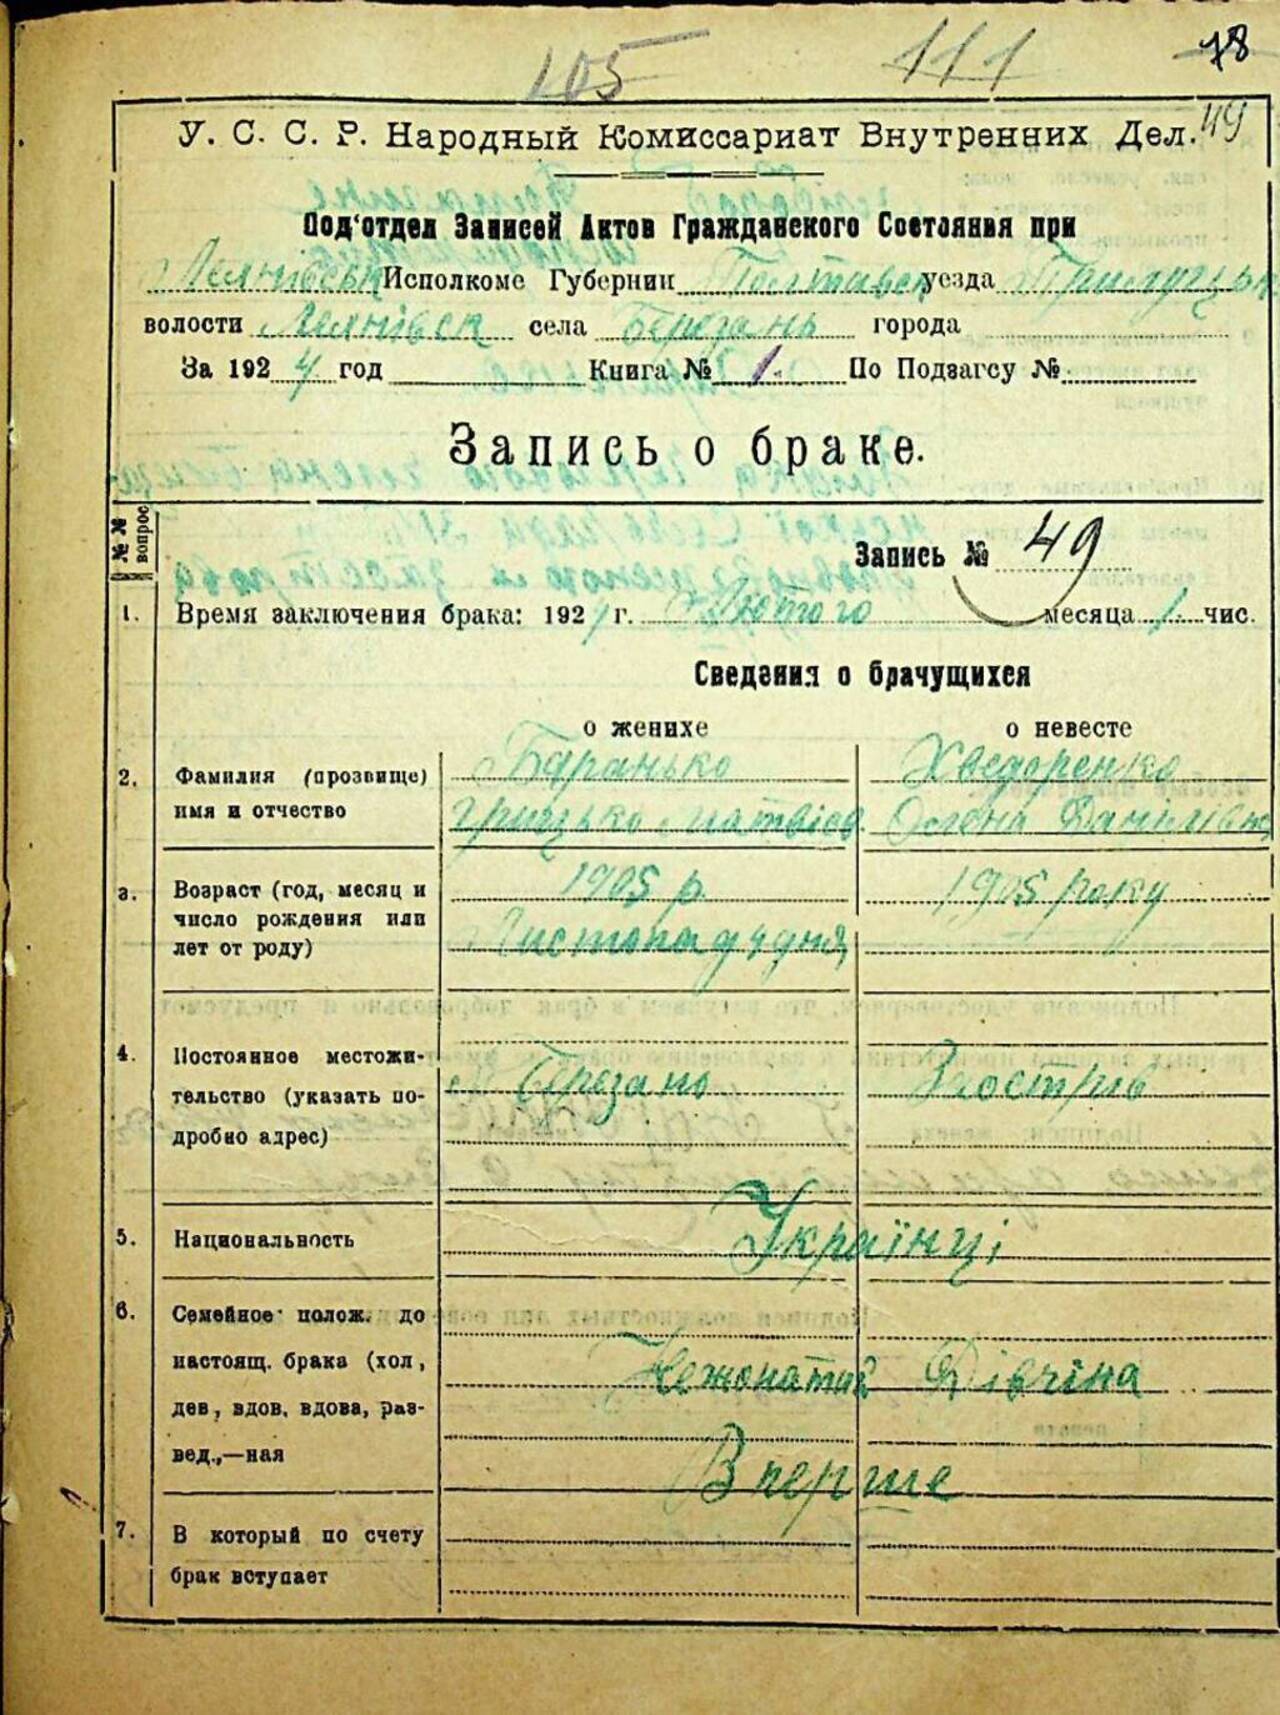 105 111 78
49
У. С. С. Р. Народный Комиссариат Внутренних Дел.
Под'отдел Записей Актов Гражданского Состояния при
Исполкоме Губернии Полтавськ уезда Прилуцьк
волости села Березань города
За 1924 год Книга № 1. По Подзагсу №
Запись о браке.
№№ вопрос
Запись № 49
1. Время заключения брака: 1924 г. Лютого месяца 1 чис.
Сведения о брачущихся
о женихе о невесте
2. Фамилия (прозвище) Баранько Хведоренко
имя и отчество Грицько Матвіев. Олена Данилівна
3. Возраст (год, месяц и 1905 р. 1905 року
число рождения или
лет от роду) Листопад 4 дня
4. Постоянное местожи-
тельство (указать по- Березань Заострів
дробно адрес)
5. Национальность Українці
6. Семейное полож. до
настоящ. брака (хол, Нежонатий Дівчіна
дев, вдов, вдова, раз-
вед.,—ная Вперше
7. В который по счету
брак вступает